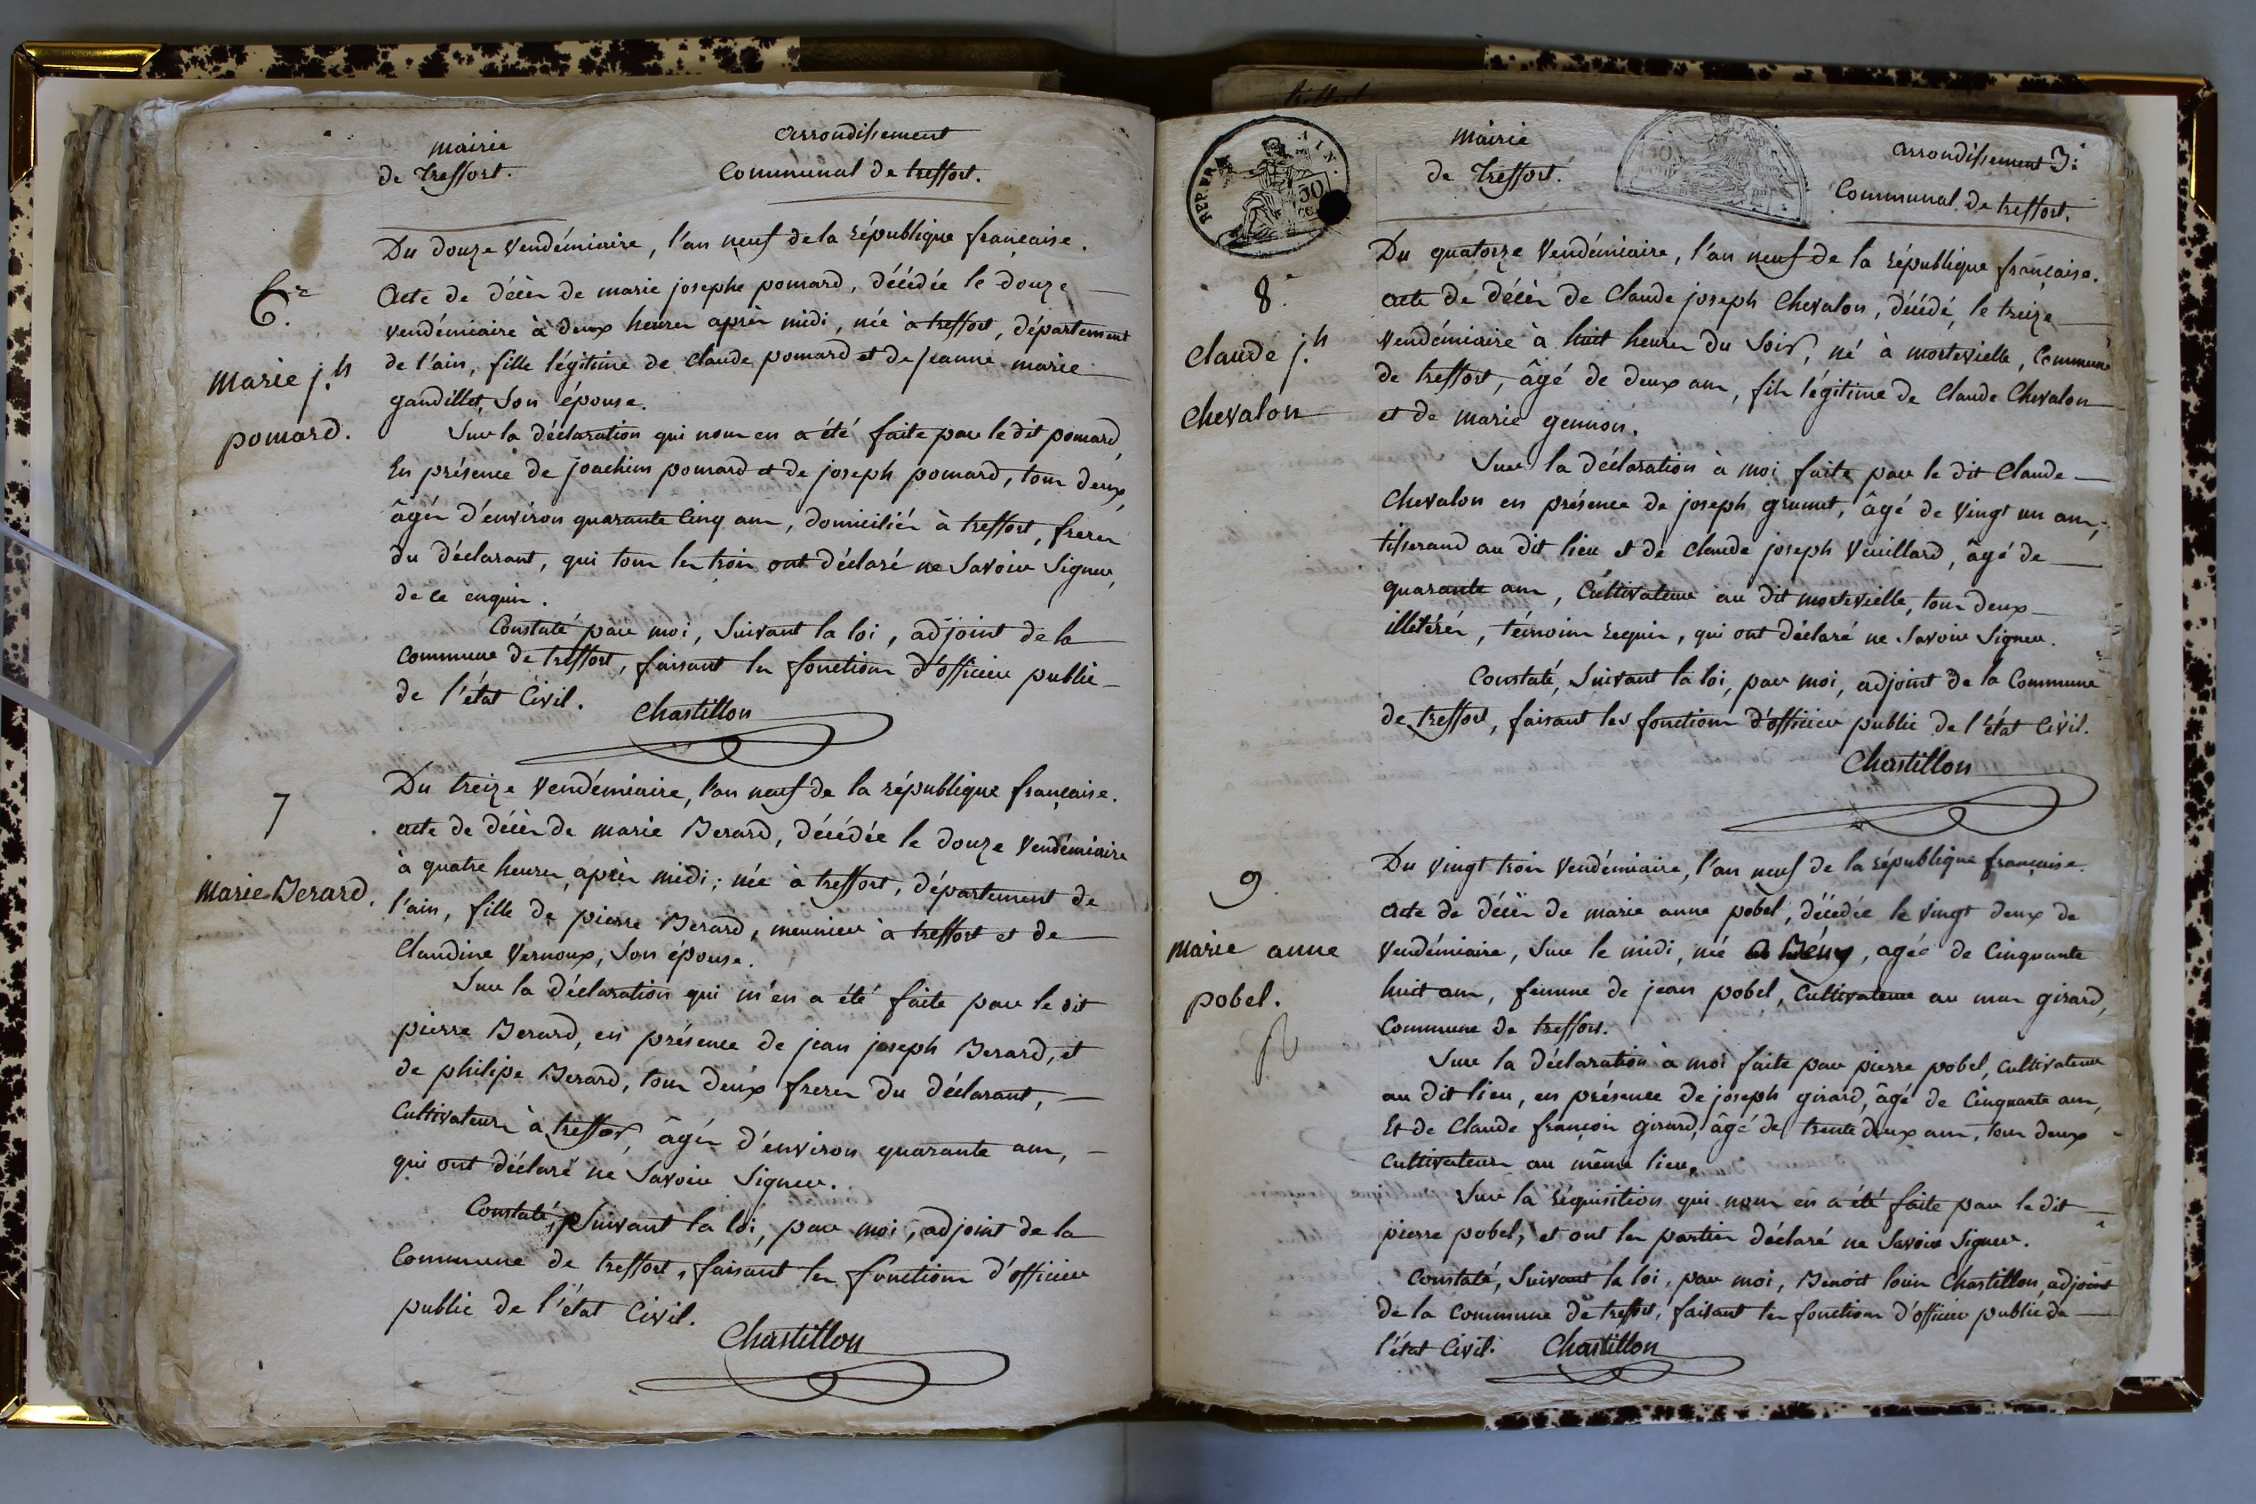 mairie
de treffort.
arrondissement
Communal de treffort.
6.e
Marie j.h
pomard.
Du douze Vendémiaire, l'an neuf de la République française.
Acte de décès de marie josephe pomard, décédée le douze
vendémiaire à deux heures après midi, née à treffort, département
de l'ain, fille légitime de claude pomard et de jeanne marie
gandillet, son épouse.
Sur la déclaration qui nous en a été faite par le dit pomard,
En présence de joachim pomard et de joseph pomard, tous deux,
âgés d'environ quarante cinq ans, domiciliés à treffort, freres
du déclarant, qui tous les trois ont déclaré ne savoir signer,
de ce enquis.
Constaté par moi, suivant la loi, adjoint de la
commune de treffort, faisant les fonctions d'officier public
de l'état civil.
Chastillon
7
Marie Berard.
Du treize Vendémiaire, l'an neuf de la république française.
acte de décès de marie Berard, décédée le douze Vendémiaire
à quatre heures après midi; née à treffort, département de
l'ain, fille de pierre Berard, meunier à treffort et de
Claudine Vernoux, son épouse.
Sur la déclaration qui m'en a été faite par le dit
pierre Berard, en présence de jean joseph Berard, et
de philipe Berard, tous deux freres du déclarant,
Cultivateurs à treffort, âgés d'environ quarante ans,
qui ont déclaré ne savoir signer.
Constaté, suivant la loi, par moi, adjoint de la
Commune de treffort, faisant les fonctions d'officier
public de l'état civil.
Chastillon
REP. FRA. AIN.
50
mairie
de treffort.
arrondissement 3.
Communal de treffort.
8.e
Claude j.h
Chevalon
Du quatorze Vendémiaire, l'an neuf de la République française.
acte de décès de Claude joseph Chevalon, décédé, le treize
Vendémiaire à huit heures du soir, né à mortevielle, Commune
de treffort, âgé de deux ans, fils légitime de Claude Chevalon
et de marie gennon.
Sur la déclaration à moi faite par le dit Claude
Chevalon en présence de joseph grumet, âgé de vingt un ans,
tisserand au dit lieu et de claude joseph Veuillard, âgé de
quarante ans, Cultivateur au dit mortevielle, tous deux
illétérés, témoins requis, qui ont déclaré ne savoir signer.
Constaté, suivant la loi, par moi, adjoint de la Commune
de treffort, faisant les fonctions d'officier public de l'état Civil.
Chastillon
9
Marie anne
pobel.
Du vingt trois Vendémiaire, l'an neuf de la République française.
acte de décès de marie anne pobel, décédée le vingt deux de
Vendémiaire, sur le midi, née à Bény, agée de Cinquante
huit ans, femme de jean pobel, Cultivateur au mas girard,
Commune de treffort.
Sur la déclaration à moi faite par pierre pobel, Cultivateur
au dit lieu, en présence de joseph girard, âgé de Cinquante ans,
Et de Claude françois girard, âgé de trente deux ans, tous deux
Cultivateurs au même lieu,
Sur la réquisition qui nous en a été faite par le dit
pierre pobel, et ont les parties déclaré ne savoir signer.
Constaté, suivant la loi, par moi, Benoit louis Chastillon, adjoint
de la Commune de treffort, faisant les fonctions d'officier public de
l'état Civil. Chastillon